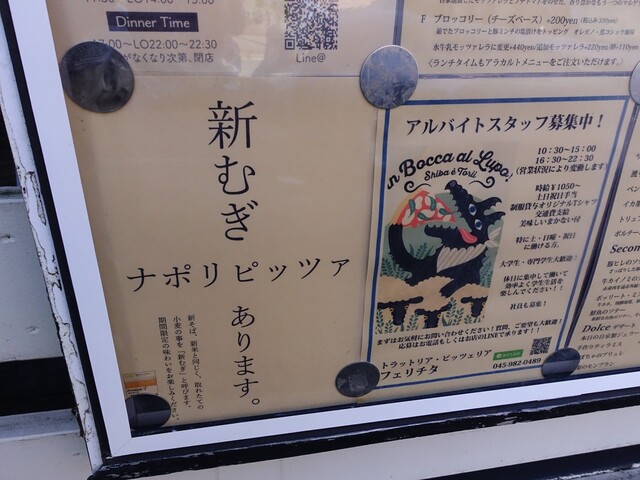 Dinner Time
17:00～LO22:00～22:30
がなくなり次第、閉店
Line@
F ブロッコリー（チーズベース）+200yen
水牛乳モッツァレラに変更+440yen/追加モッツァレラ+220yen/
〈ランチタイムもアラカルトメニューをご注文いただけます。〉
新むぎ
ナポリピッツァ
あります。
新そば、新米と同じく、取れたての
小麦の事を「新むぎ」と呼びます。
期間限定の味わいをお楽しみください。
アルバイトスタッフ募集中！
In Bocca al Lupo!
Shiba è Torii
10：30～15：00
16：30～22：30
(営業状況により変動します)
時給￥1050～
土日祝日手当
制服貸与オリジナルTシャツ
交通費支給
美味しいまかない付
特に土・日曜・祝日
に働ける方。
大学生・専門学生大歓迎！
休日に集中して働いて
効率よく学生生活を
楽しんでください！！
社員も募集！
まずはお気軽にお問い合わせください！質問、ご要望も大歓迎！
応募はお電話もしくはお店のLINEで承ります！！
トラットリア・ピッツェリア
フェリチタ
045-982-0489
Dolce デザート